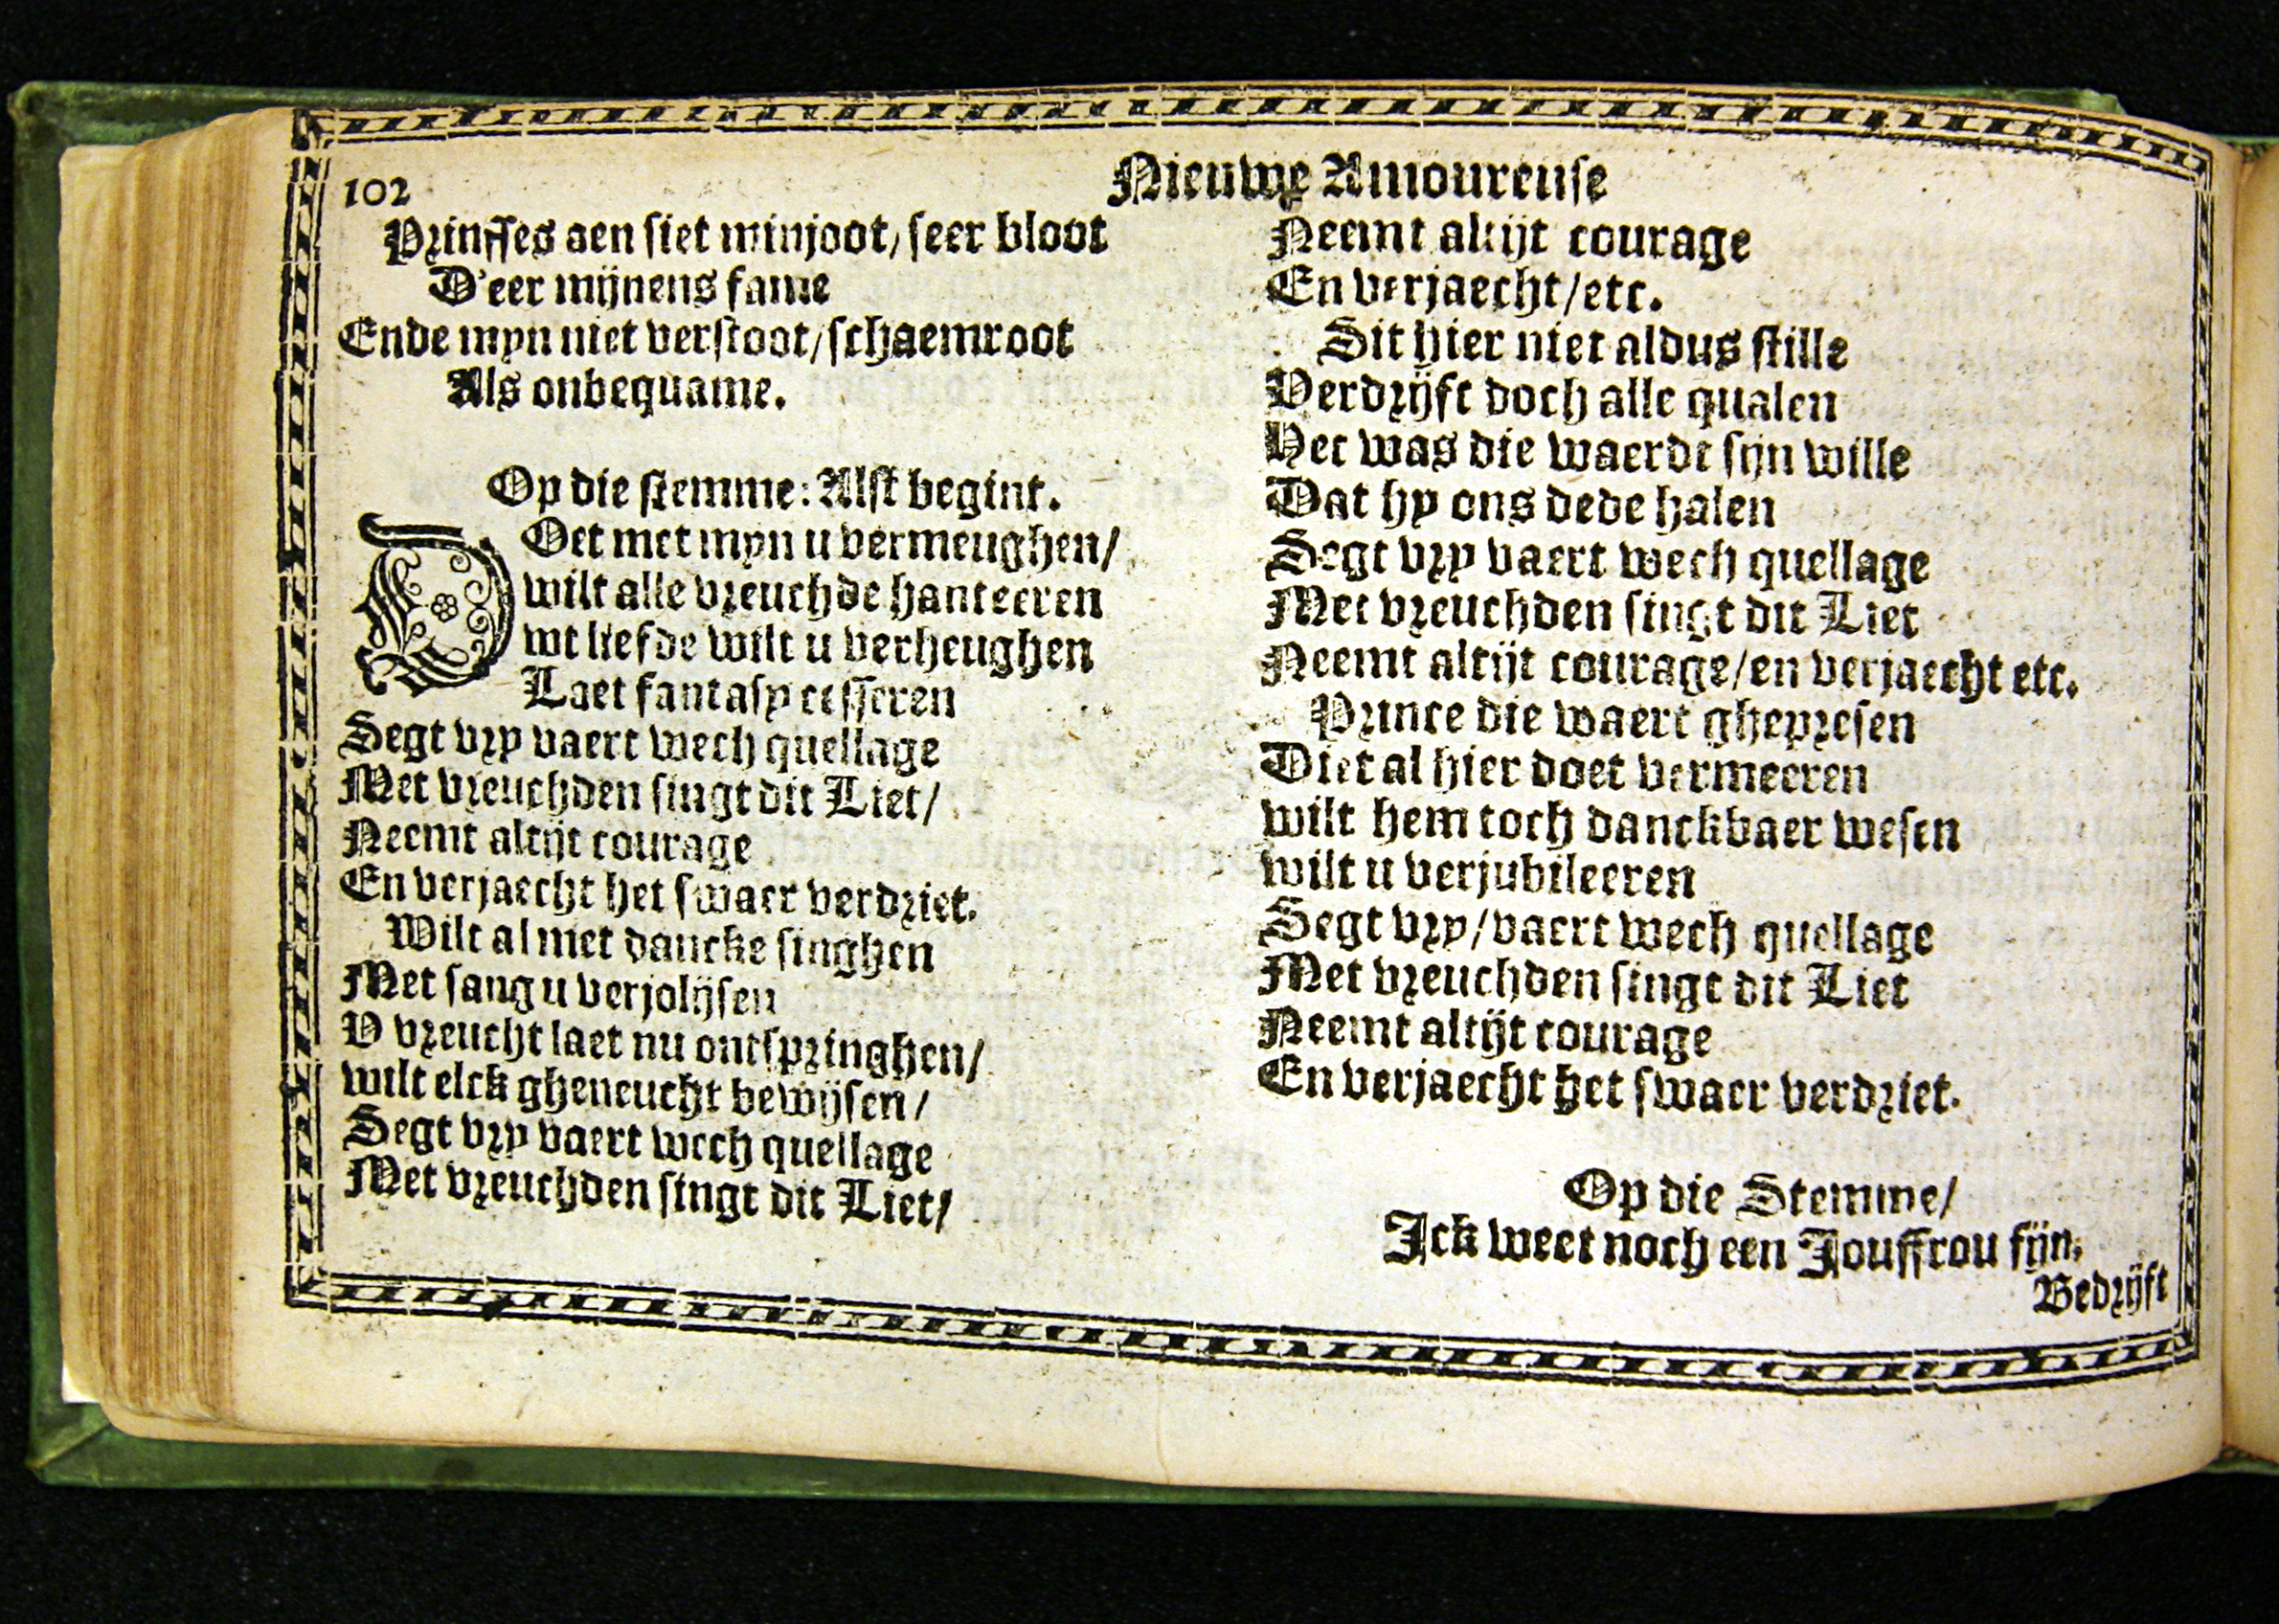 102
Nieuwe Amoureuse
Prinsses aen siet minjoot/ seer bloot
D'eer mijnens fame
Ende myn niet verstoot/ schaemroot
Als onbequame.
Op die stemme: Alst begint.
DOet met myn u vermeughen/
wilt alle vreuchde hanteeren
wt liefde wilt u verheughen
Laet fantasy cesseren
Segt vry vaert wech quellage
Met vreuchden singt dit Liet/
Neemt altijt courage
En verjaecht het swaer verdriet.
Wilt al met dancke singhen
Met sang u verjolijsen
V vreucht laet nu ontspringhen/
wilt elck gheneucht bewijsen/
Segt vry vaert wech quellage
Met vreuchden singt dit Liet/
Neemt altijt courage
En verjaecht/etc.
Sit hier niet aldus stille
Verdrijft doch alle qualen
Het was die waerdt sijn wille
Dat hy ons dede halen
Segt vry vaert wech quellage
Met vreuchden singt dit Liet
Neemt altijt courage/en verjaecht etc.
Prince die waert ghepresen
Diet al hier doet vermeeren
wilt hem toch danckbaer wesen
wilt u verjubileeren
Segt vry/vaert wech quellage
Met vreuchden singt dit Liet
Neemt altijt courage
En verjaecht het swaer verdriet.
Op die Stemme/
Ick weet noch een Jouffrou fijn.
Bedrijft